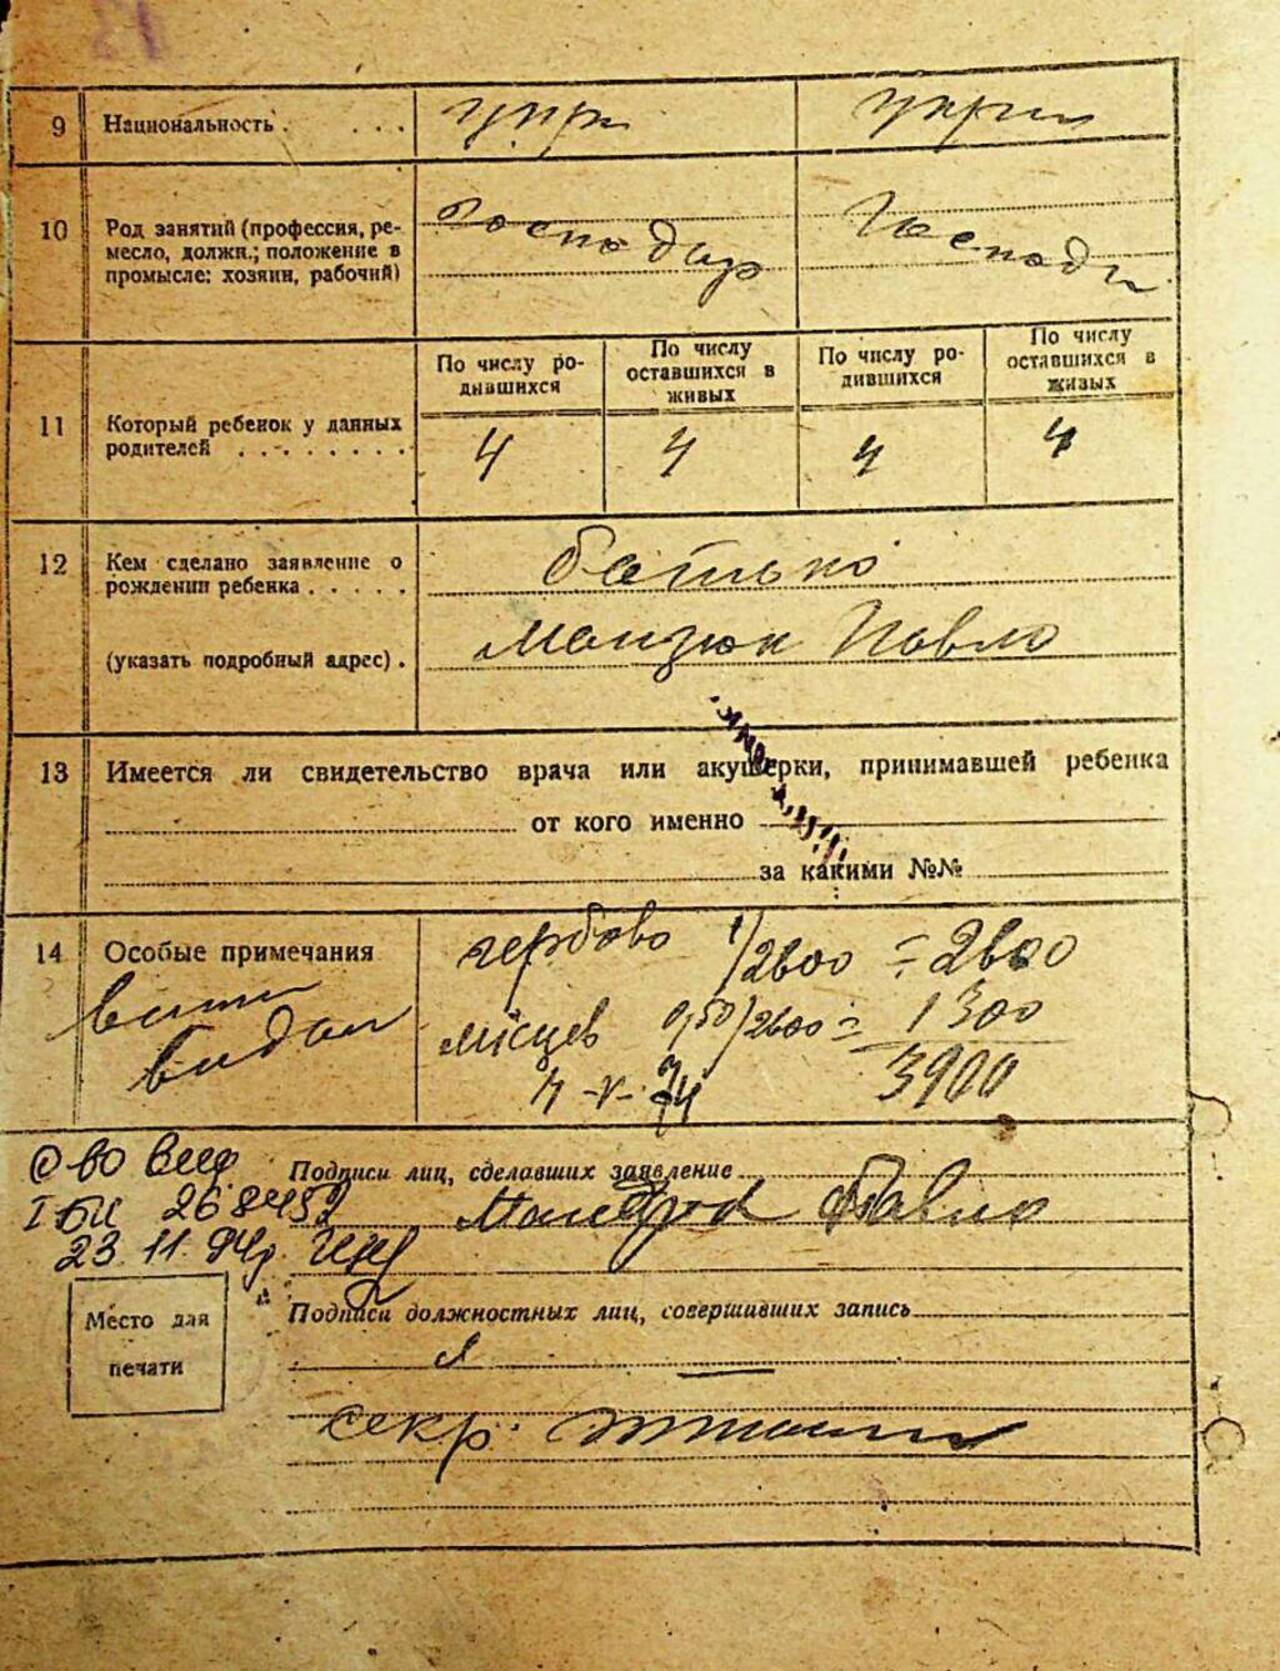 9 Национальность . . . . укр укр
10 Род занятий (профессия, ре-
месло, должн.; положение в
промысле: хозяин, рабочий)
господар господ
По числу ро-
дившихся
По числу
оставшихся в
живых
По числу ро-
дившихся
По числу
оставшихся в
живых
11 Который ребенок у данных
родителей . . . . . . . .
4 4 4 4
12 Кем сделано заявление о
рождении ребенка . . . . .
батько
(указать подробный адрес) .
Мандзюк Павло
13 Имеется ли свидетельство врача или акушерки, принимавшей ребенка
от кого именно
за какими №№
14 Особые примечания
видан
гербово 1/2600 = 2600
місцев 0,50/2600 = 1300
3900
4-V-
Подписи лиц, сделавших заявление
Павло
С-во
I БК 268452
23.11.94г.
Место для
печати
Подписи должностных лиц, совершивших запись
секр.